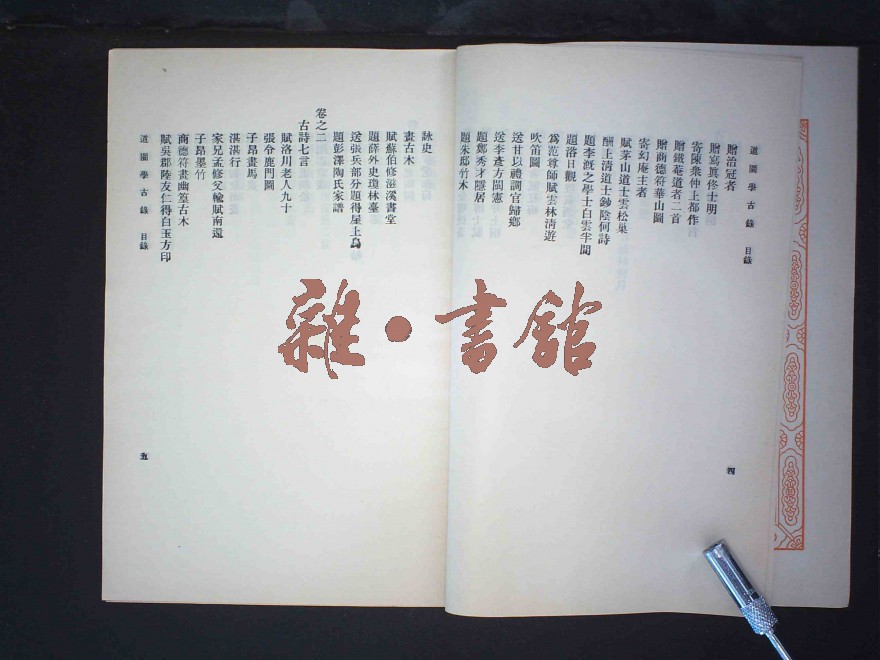 道園學古錄 目錄
贈治冠者
贈寫眞佟士明
寄陳衆仲上都作
贈鐵菴道者二首
贈商德符華山圖
寄幻庵主者
賦茅山道士雲松巢
酬上清道士鈔陰何詩
題李溉之學士白雲半間
題洛日觀
爲范尊師賦雲林清遊
吹笛圖
送甘以禮調官歸鄉
送李彥方閩憲
題鄭秀才隱居
題朱邸竹木
四
詠史
畫古木
賦蘇伯修滋溪書堂
題薛外史瓊林臺
送張兵部分題得屋上烏
題彭澤陶氏家譜
卷之二
古詩七言
賦洛川老人九十
張令鹿門圖
子昂畫馬
湛湛行
家兄孟修父輸賦南還
子昂墨竹
商德符畫幽篁古木
賦吳郡陸友仁得白玉方印
道園學古錄 目錄
五
雜•書館